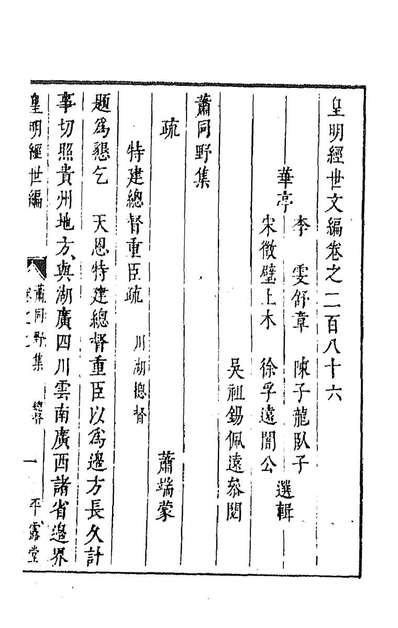 皇明經世文編卷之二百八十六
華亭
李　雯舒章　陳子龍臥子
宋徵璧上木　徐孚遠闇公　選輯
吳祖錫佩遠叅閱
蕭同野集
疏　蕭端蒙
特建總督重臣疏　川湖總督
題為懇乞　天恩特建總督重臣以為邊方長久計
事切照貴州地方與湖廣四川雲南廣西諸省邊界
皇明經世編　蕭同野集　總督　一　平露堂